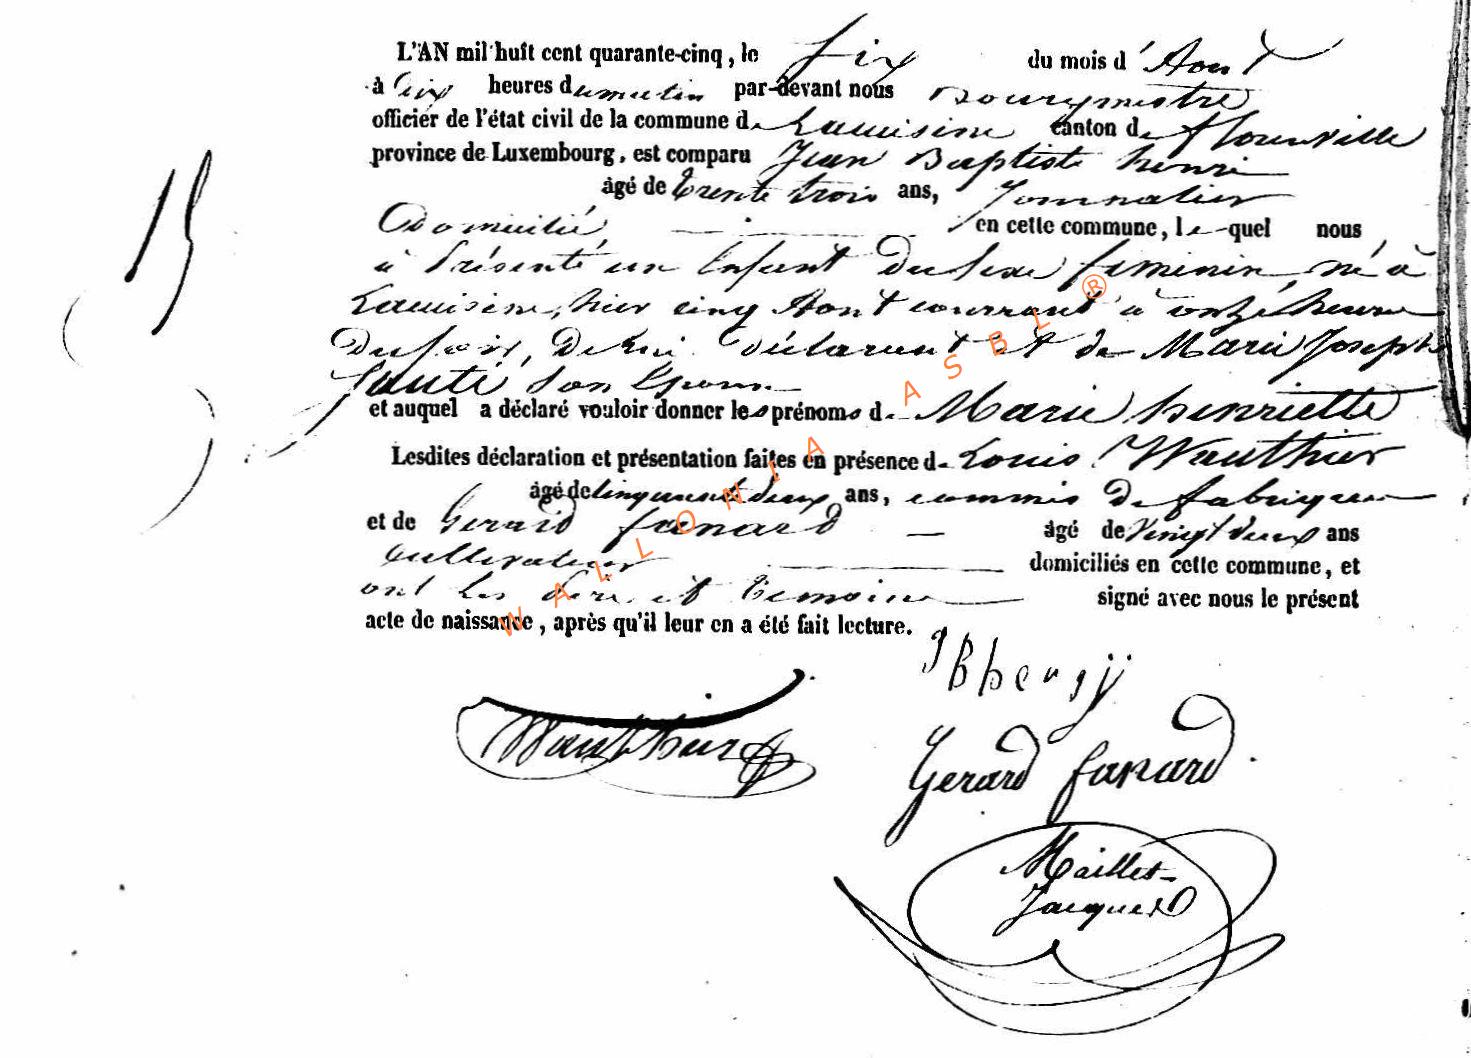 L'AN mil huit cent quarante-cinq, le Six du mois d'Aout
à dix heures du matin par-devant nous Bourgmestre
officier de l'état civil de la commune de Lacuisine canton de florenville
province de Luxembourg, est comparu Jean Baptiste henri
âgé de trente trois ans, Journalier
Domicilié en cette commune, lequel nous
à Présenté un Enfant du Sexe feminin, né à
Lacuisine, hier cinq Aout courrant à onze heure
du soir, De lui déclarant et de Marie Joseph
son Epouse
et auquel a déclaré vouloir donner les prénoms de Marie henriette
Lesdites déclaration et présentation faites en présence de Louis Wauthier
âgé de Cinquante deux ans, commis de fabrique
et de Gerard fanard âgé de Vingt deux ans
Cultivateur domiciliés en cette commune, et
ont les Père et temoins signé avec nous le présent
acte de naissance, après qu'il leur en a été fait lecture.
15
JBhenry
Wauthier
Gerard fanard
Maillet-
Jacques
WALLONIA ASBL ®